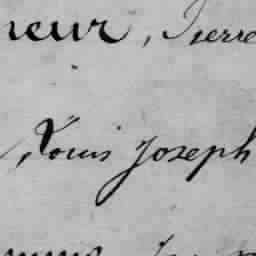 neur, Pierre
, Louis Joseph